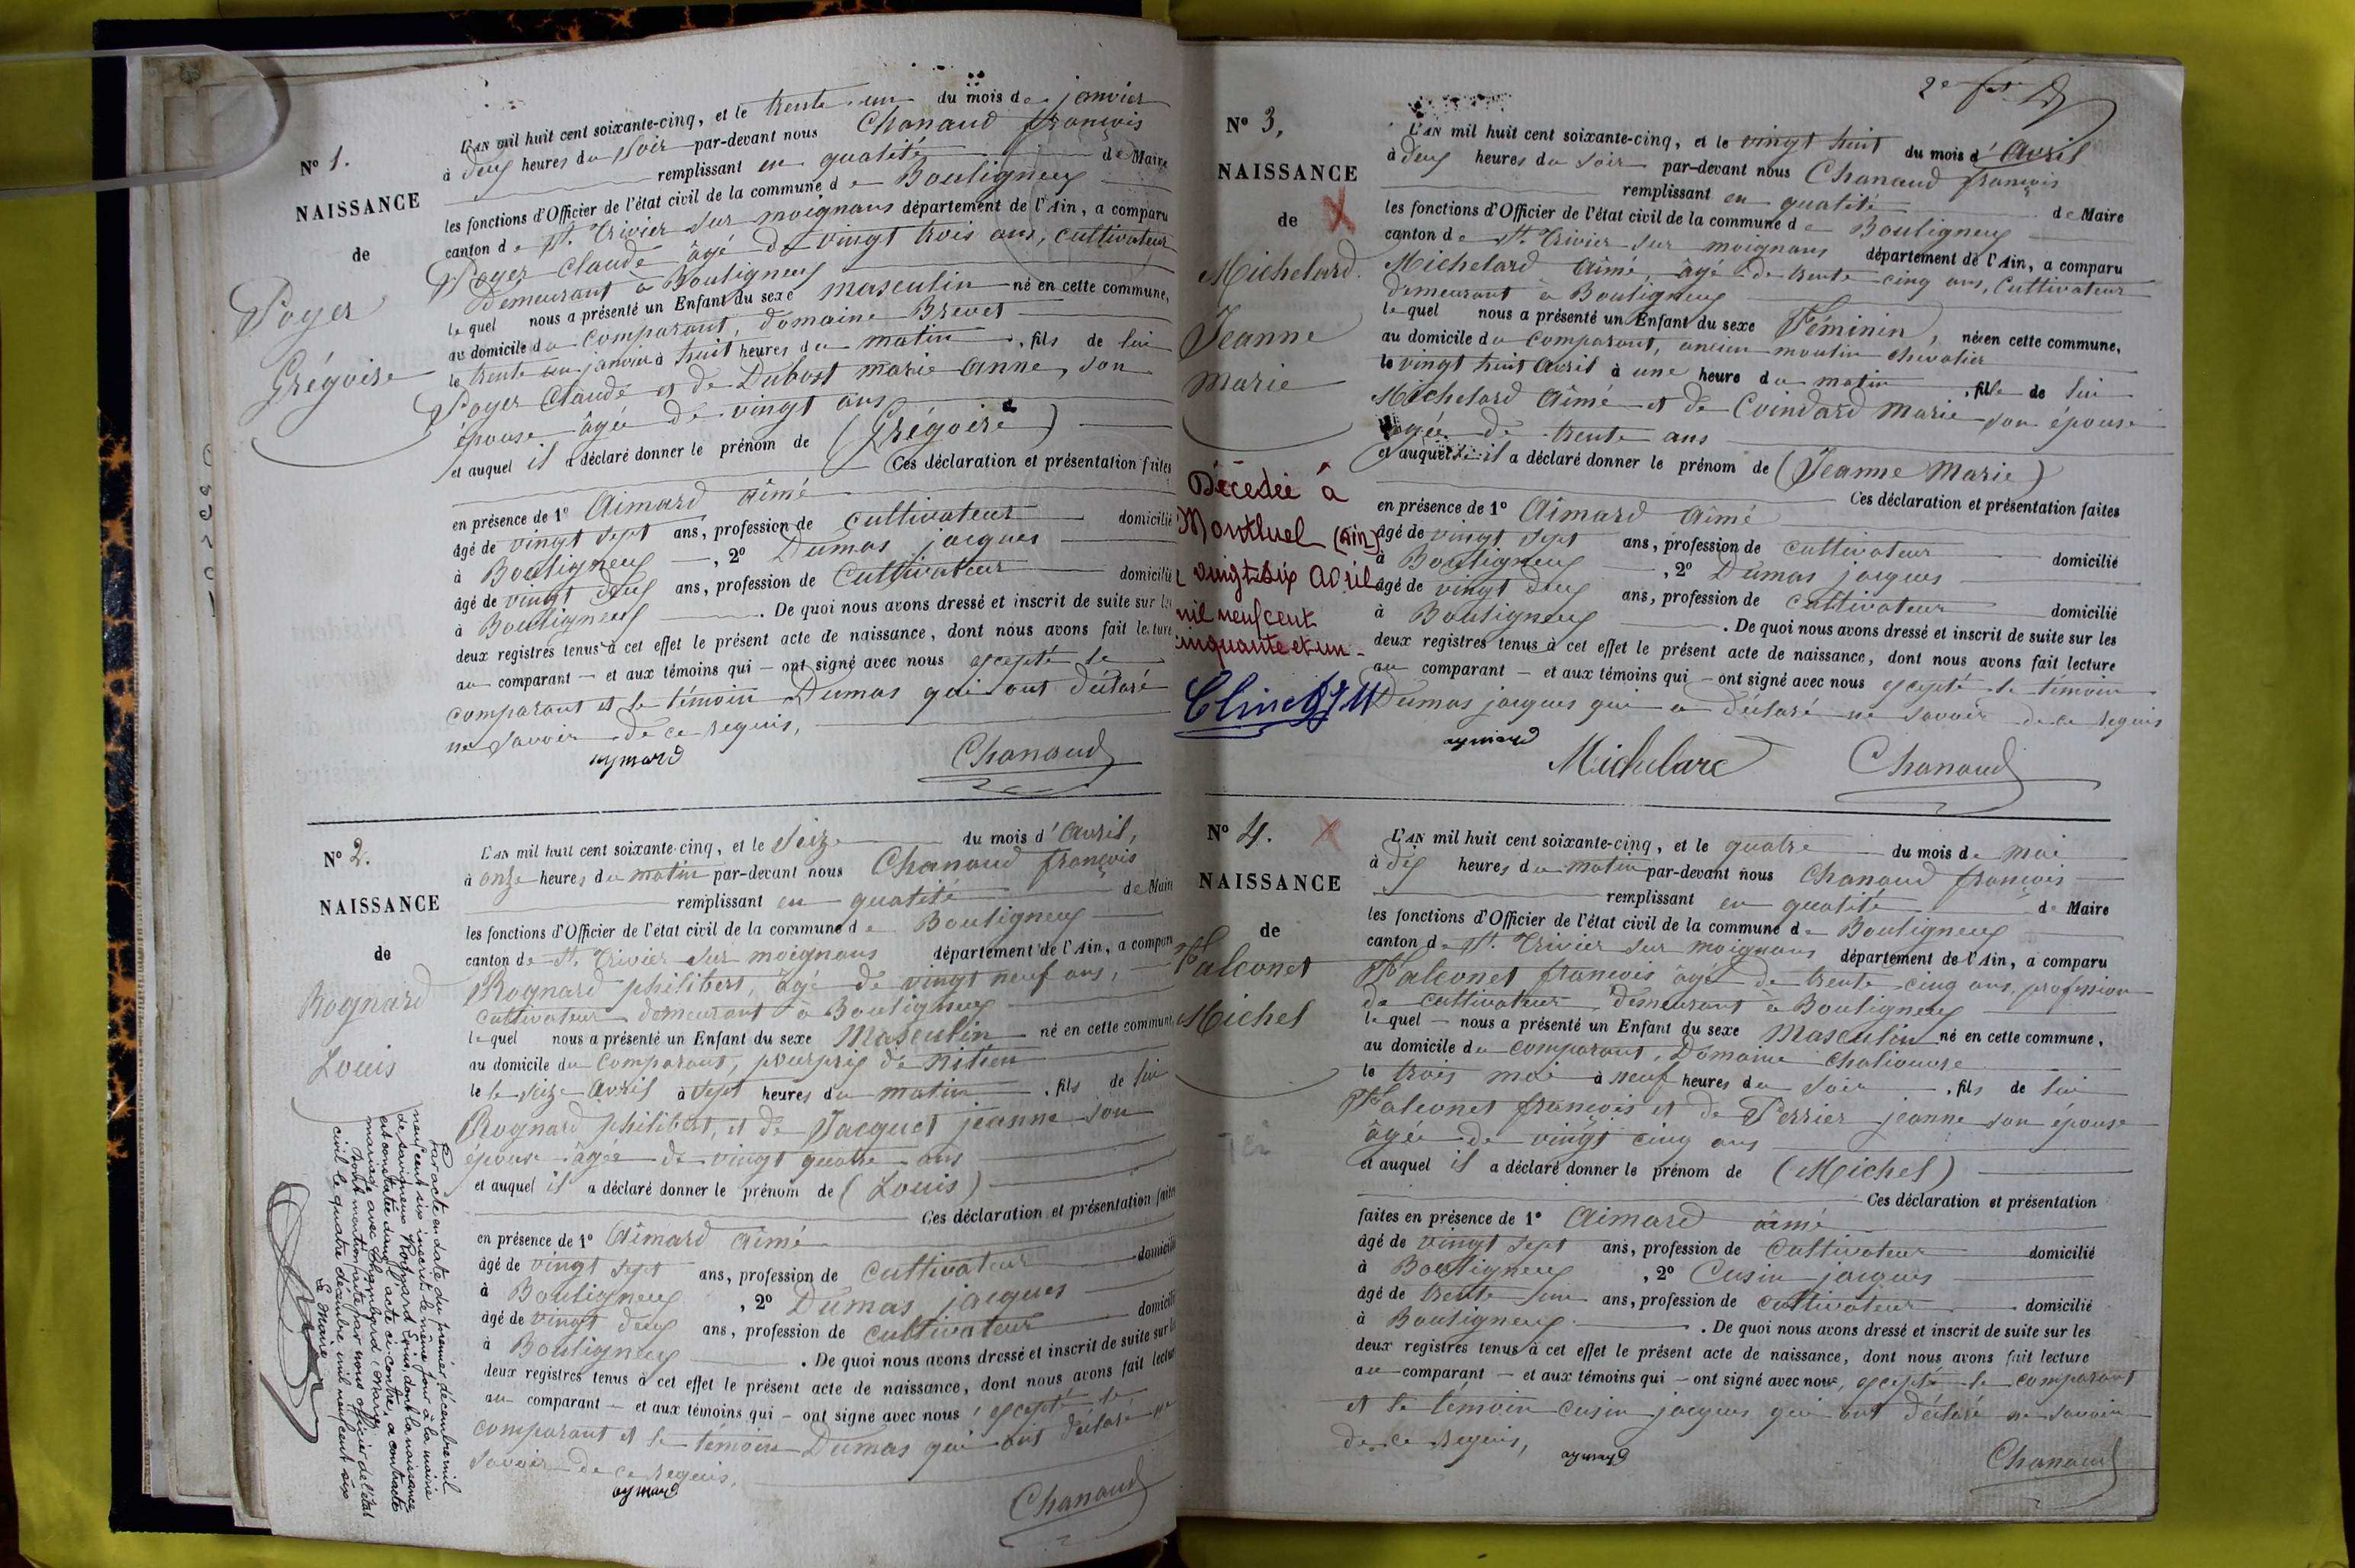 N° 1.
NAISSANCE
de
Poyer
Grégoire
L'AN mil huit cent soixante-cinq, et le trente un du mois de janvier
à deux heures du soir par-devant nous Chanaud françois
remplissant en qualité de Maire
les fonctions d'Officier de l'état civil de la commune de Bouligneux
canton de St. Trivier sur moignans département de l'Ain, a comparu
Poyer Claude âgé de vingt trois ans, cultivateur
Demeurant à Bouligneux
lequel nous a présenté un Enfant du sexe masculin né en cette commune,
au domicile du comparant, domaine Brevet
le trente un janvier à huit heures du matin, fils de lui
Poyer Claude et de Dubost marie anne, son
épouse âgée de vingt ans
et auquel il a déclaré donner le prénom de (Grégoire)
Ces déclaration et présentation faites
en présence de 1° Aimard aimé
âgé de vingt sept ans, profession de cultivateur domicilié
à Bouligneux, 2° Dumas jacques
âgé de vingt deux ans, profession de cultivateur domicilié
à Bouligneux. De quoi nous avons dressé et inscrit de suite sur les
deux registres tenus à cet effet le présent acte de naissance, dont nous avons fait lecture
au comparant — et aux témoins qui — ont signé avec nous excepté le
comparant et le témoin Dumas qui ont déclaré
ne savoir de ce requis,
aymard Chanaud
N° 2.
NAISSANCE
de
Rognard
Louis
L'AN mil huit cent soixante-cinq, et le seize du mois d'avril,
à onze heures du matin par-devant nous Chanaud françois
remplissant en qualité de Maire
les fonctions d'Officier de l'état civil de la commune de Bouligneux
canton de St. Trivier sur moignans département de l'Ain, a comparu
Rognard philibert, âgé de vingt neuf ans,
cultivateur demeurant à Bouligneux
lequel nous a présenté un Enfant du sexe Masculin né en cette commune,
au domicile du comparant, pourpris de
le le seize avril à sept heures du matin, fils de lui
Rognard philibert, et de Jacquet jeanne son
épouse âgée de vingt quatre ans
et auquel il a déclaré donner le prénom de (Louis)
Ces déclaration et présentation faites
en présence de 1° Aimard Aimé
âgé de vingt sept ans, profession de cultivateur domicilié
à Bouligneux, 2° Dumas jacques
âgé de vingt deux ans, profession de cultivateur domicilié
à Bouligneux. De quoi nous avons dressé et inscrit de suite sur les
deux registres tenus à cet effet le présent acte de naissance, dont nous avons fait lecture
au comparant — et aux témoins qui — ont signé avec nous, excepté le
comparant et le témoin Dumas qui ont déclaré ne
savoir de ce requis,
aymard Chanaud
Par acte en date du premier décembre mil
neuf cent six inscrit le même jour à la mairie
de Savigneux Rognard Louis, dont la naissance
est constatée dans l'acte ci-contre, a contracté
mariage avec Chambard Marie
Dont mention faite par nous officier de l'état
civil le quatre décembre mil neuf cent six
Le Maire
2e
N° 3,
NAISSANCE
de X
Michelard
Jeanne
Marie
Décédée à
Montluel (Ain)
vingt six avril
mil neuf cent
cinquante et un
L'AN mil huit cent soixante-cinq, et le vingt huit du mois d'Avril
à deux heures du soir par-devant nous Chanaud françois
remplissant en qualité de Maire
les fonctions d'Officier de l'état civil de la commune de Bouligneux
canton de St. Trivier sur moignans département de l'Ain, a comparu
Michelard Aimé, âgé de trente cinq ans, cultivateur
demeurant à Bouligneux
lequel nous a présenté un Enfant du sexe Féminin, née en cette commune,
au domicile du comparant, ancien moulin chevalier
le vingt huit avril à une heure du matin, fille de lui
Michelard Aimé et de Coindard Marie son épouse
âgée de trente ans
et auquel il a déclaré donner le prénom de (Jeanne Marie)
Ces déclaration et présentation faites
en présence de 1° Aimard Aimé
âgé de vingt sept ans, profession de cultivateur domicilié
à Bouligneux, 2° Dumas jacques
âgé de vingt deux ans, profession de cultivateur domicilié
à Bouligneux. De quoi nous avons dressé et inscrit de suite sur les
deux registres tenus à cet effet le présent acte de naissance, dont nous avons fait lecture
au comparant — et aux témoins qui — ont signé avec nous excepté le témoin
Dumas jacques qui a déclaré ne savoir de ce requis
aymard Michelard Chanaud
N° 4. X
NAISSANCE
de
Falconet
Michel
L'AN mil huit cent soixante-cinq, et le quatre du mois de mai
à dix heures du matin par-devant nous Chanaud françois
remplissant en qualité de Maire
les fonctions d'Officier de l'état civil de la commune de Bouligneux
canton de St. Trivier sur moignans département de l'Ain, a comparu
Falconet francois âgé de trente cinq ans, profession
de cultivateur demeurant à Bouligneux
lequel — nous a présenté un Enfant du sexe Masculin né en cette commune,
au domicile du comparant, Domaine
le trois mai à neuf heures du soir, fils de lui
Falconet françois et de Perrier jeanne son épouse
âgée de vingt cinq ans
et auquel il a déclaré donner le prénom de (Michel)
Ces déclaration et présentation
faites en présence de 1° Aimard aimé
âgé de vingt sept ans, profession de cultivateur domicilié
à Bouligneux, 2° Cusin jacques
âgé de trente un ans, profession de cultivateur domicilié
à Bouligneux. De quoi nous avons dressé et inscrit de suite sur les
deux registres tenus à cet effet le présent acte de naissance, dont nous avons fait lecture
au comparant — et aux témoins qui — ont signé avec nous, excepté le comparant
et le témoin cusin jacques qui ont déclaré ne savoir
de ce requis,
aymard Chanaud